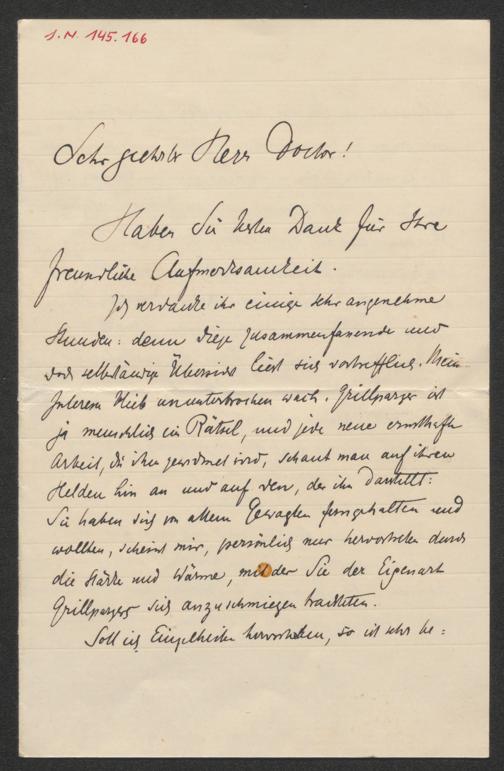 J. N. 145.166
Sehr geehrter Herr Doctor!
Haben Sie besten Dank für Ihre
freundliche Aufmerksamkeit.
Ich verdanke ihr einige sehr angenehme
Stunden: denn diese zusammenfassende und
doch selbständige Übersicht liest sich vortrefflich. Mein
Interesse blieb ununterbrochen wach. Grillparzer ist
ja menschlich ein Rätsel, und jede neue ernsthafte
Arbeit, die ihm gewidmet wird, schaut man auf ihren
Helden hin an und auf den, der ihn darstellt:
Sie haben sich von allem Gewagten ferngehalten und
wollten, scheint mir, persönlich nur hervortreten durch
die Stärke und Wärme, mit der Sie der Eigenart
Grillparzers sich anzuschmiegen trachteten.
Soll ich Einzelheiten hervorheben, so ist sehr be=